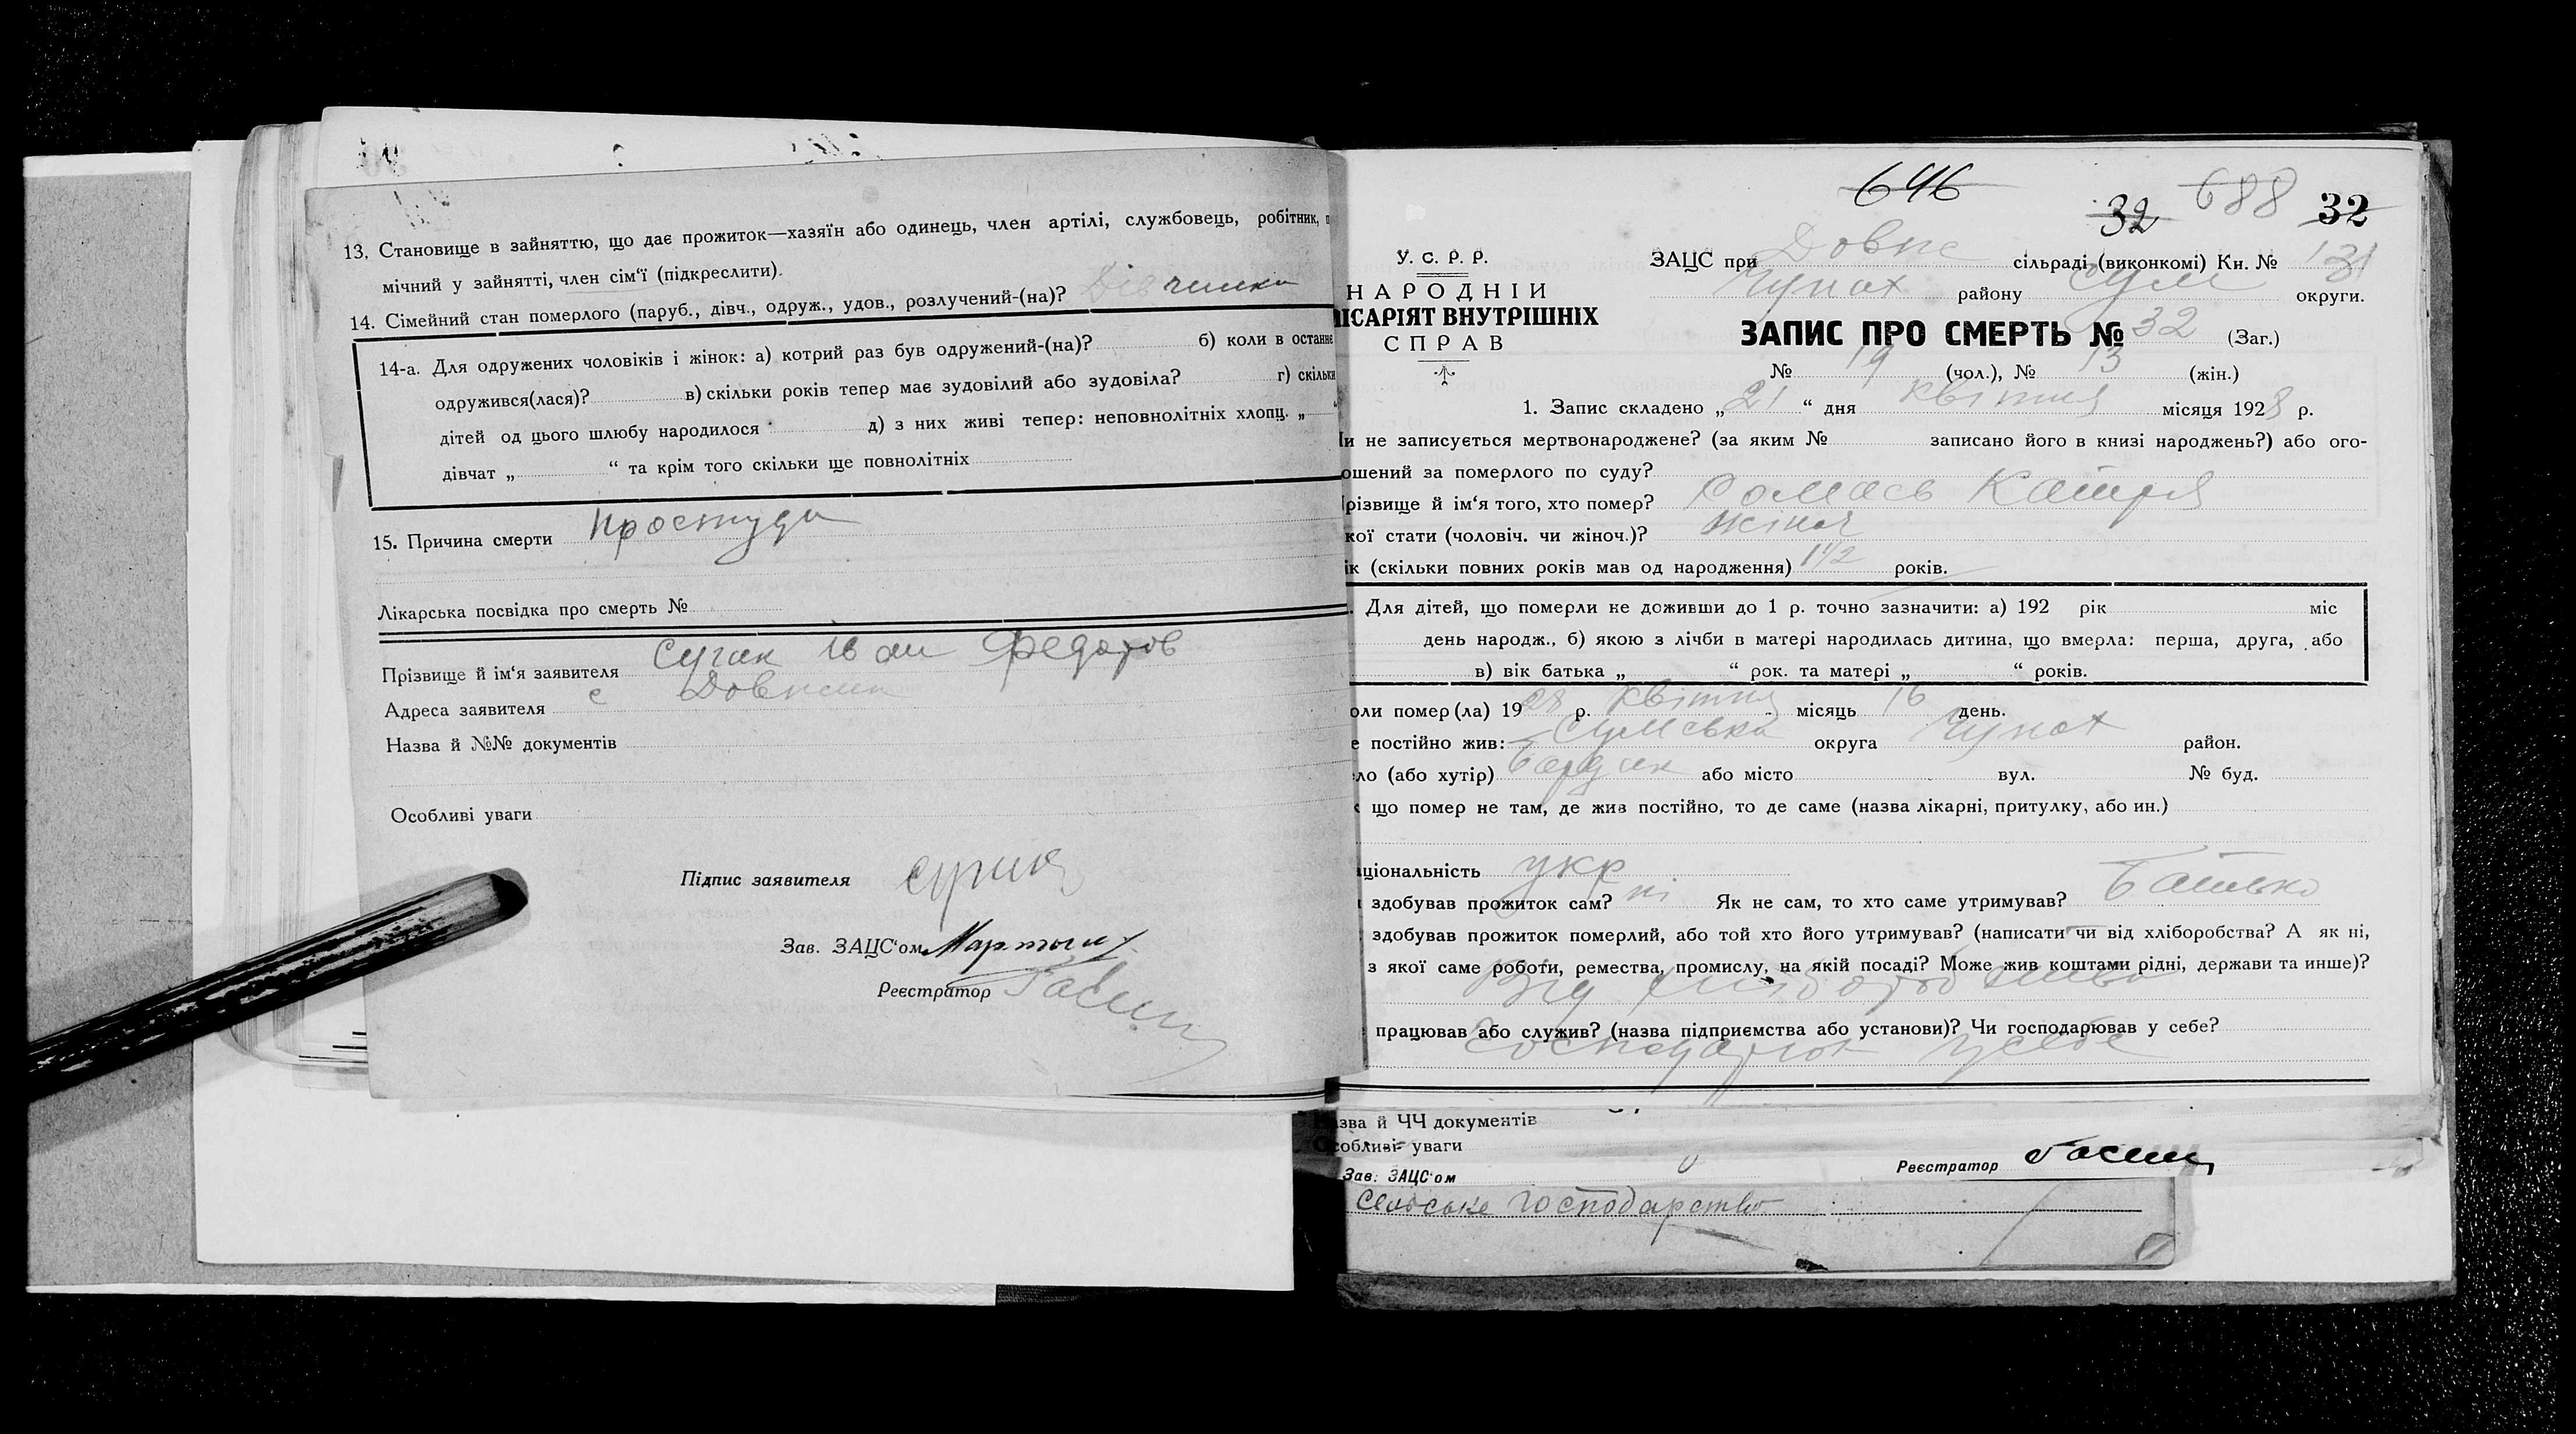 13. Становище в зайняттю, що дає прожиток—хазяїн або одинець, член артілі, службовець, робітник, п
мічний у зайнятті, член сім'ї (підкреслити).
14. Сімейний стан померлого (паруб., дівч., одруж., удов., розлучений-(на)? Дівчинка
14-а. Для одружених чоловіків і жінок: а) котрий раз був одружений-(на)? б) коли в останнє
одружився(лася)? в) скільки років тепер має зудовілий або зудовіла? г) скільки
дітей од цього шлюбу народилося д) з них живі тепер: неповнолітніх хлопц. „ “
дівчат „ “ та крім того скільки ще повнолітніх
15. Причина смерти Простуда
Лікарська посвідка про смерть №
Прізвище й ім'я заявителя Сугак Іван Федоров
Адреса заявителя с
Назва й №№ документів
Особливі уваги
Підпис заявителя
Зав. ЗАЦС'ом
Реєстратор
646
32 688 32
У. С. Р. Р.
НАРОДНІЙ
ІСАРІЯТ ВНУТРІШНІХ
СПРАВ
ЗАЦС при Довж сільраді (виконкомі) Кн. № 131
району Сум округи.
ЗАПИС ПРО СМЕРТЬ № 32 (Заг.)
№ 19 (чол.), № 13 (жін.)
1. Запис складено „21“ дня квітня місяця 1928 р.
и не записується мертвонароджене? (за яким № записано його в книзі народжень?) або ого-
ошений за померлого по суду?
різвище й ім'я того, хто помер? Катря
кої стати (чоловіч. чи жіноч.)? жіноч
ік (скільки повних років мав од народження) 1 1/2 років.
. Для дітей, що померли не доживши до 1 р. точно зазначити: а) 192 рік міс
день народж., б) якою з лічби в матері народилась дитина, що вмерла: перша, друга, або
в) вік батька „ “ рок. та матері „ “ років.
оли помер (ла) 1928 р. квітня місяць 16 день.
е постійно жив: Сумська округа район.
ло (або хутір) або місто вул. № буд.
що помер не там, де жив постійно, то де саме (назва лікарні, притулку, або ин.)
ціональність укр
здобував прожиток сам? ні Як не сам, то хто саме утримував? Батько
здобував прожиток померлий, або той хто його утримував? (написати чи від хліборобства? А як ні,
з якої саме роботи, ремества, промислу, на якій посаді? Може жив коштами рідні, держави та инше)?
Від хліборобства
працював або служив? (назва підприємства або установи)? Чи господарював у себе?
у себе
зва й ЧЧ документів
собливі уваги
Зав. ЗАЦС'ом Реєстратор
Сельське господарство